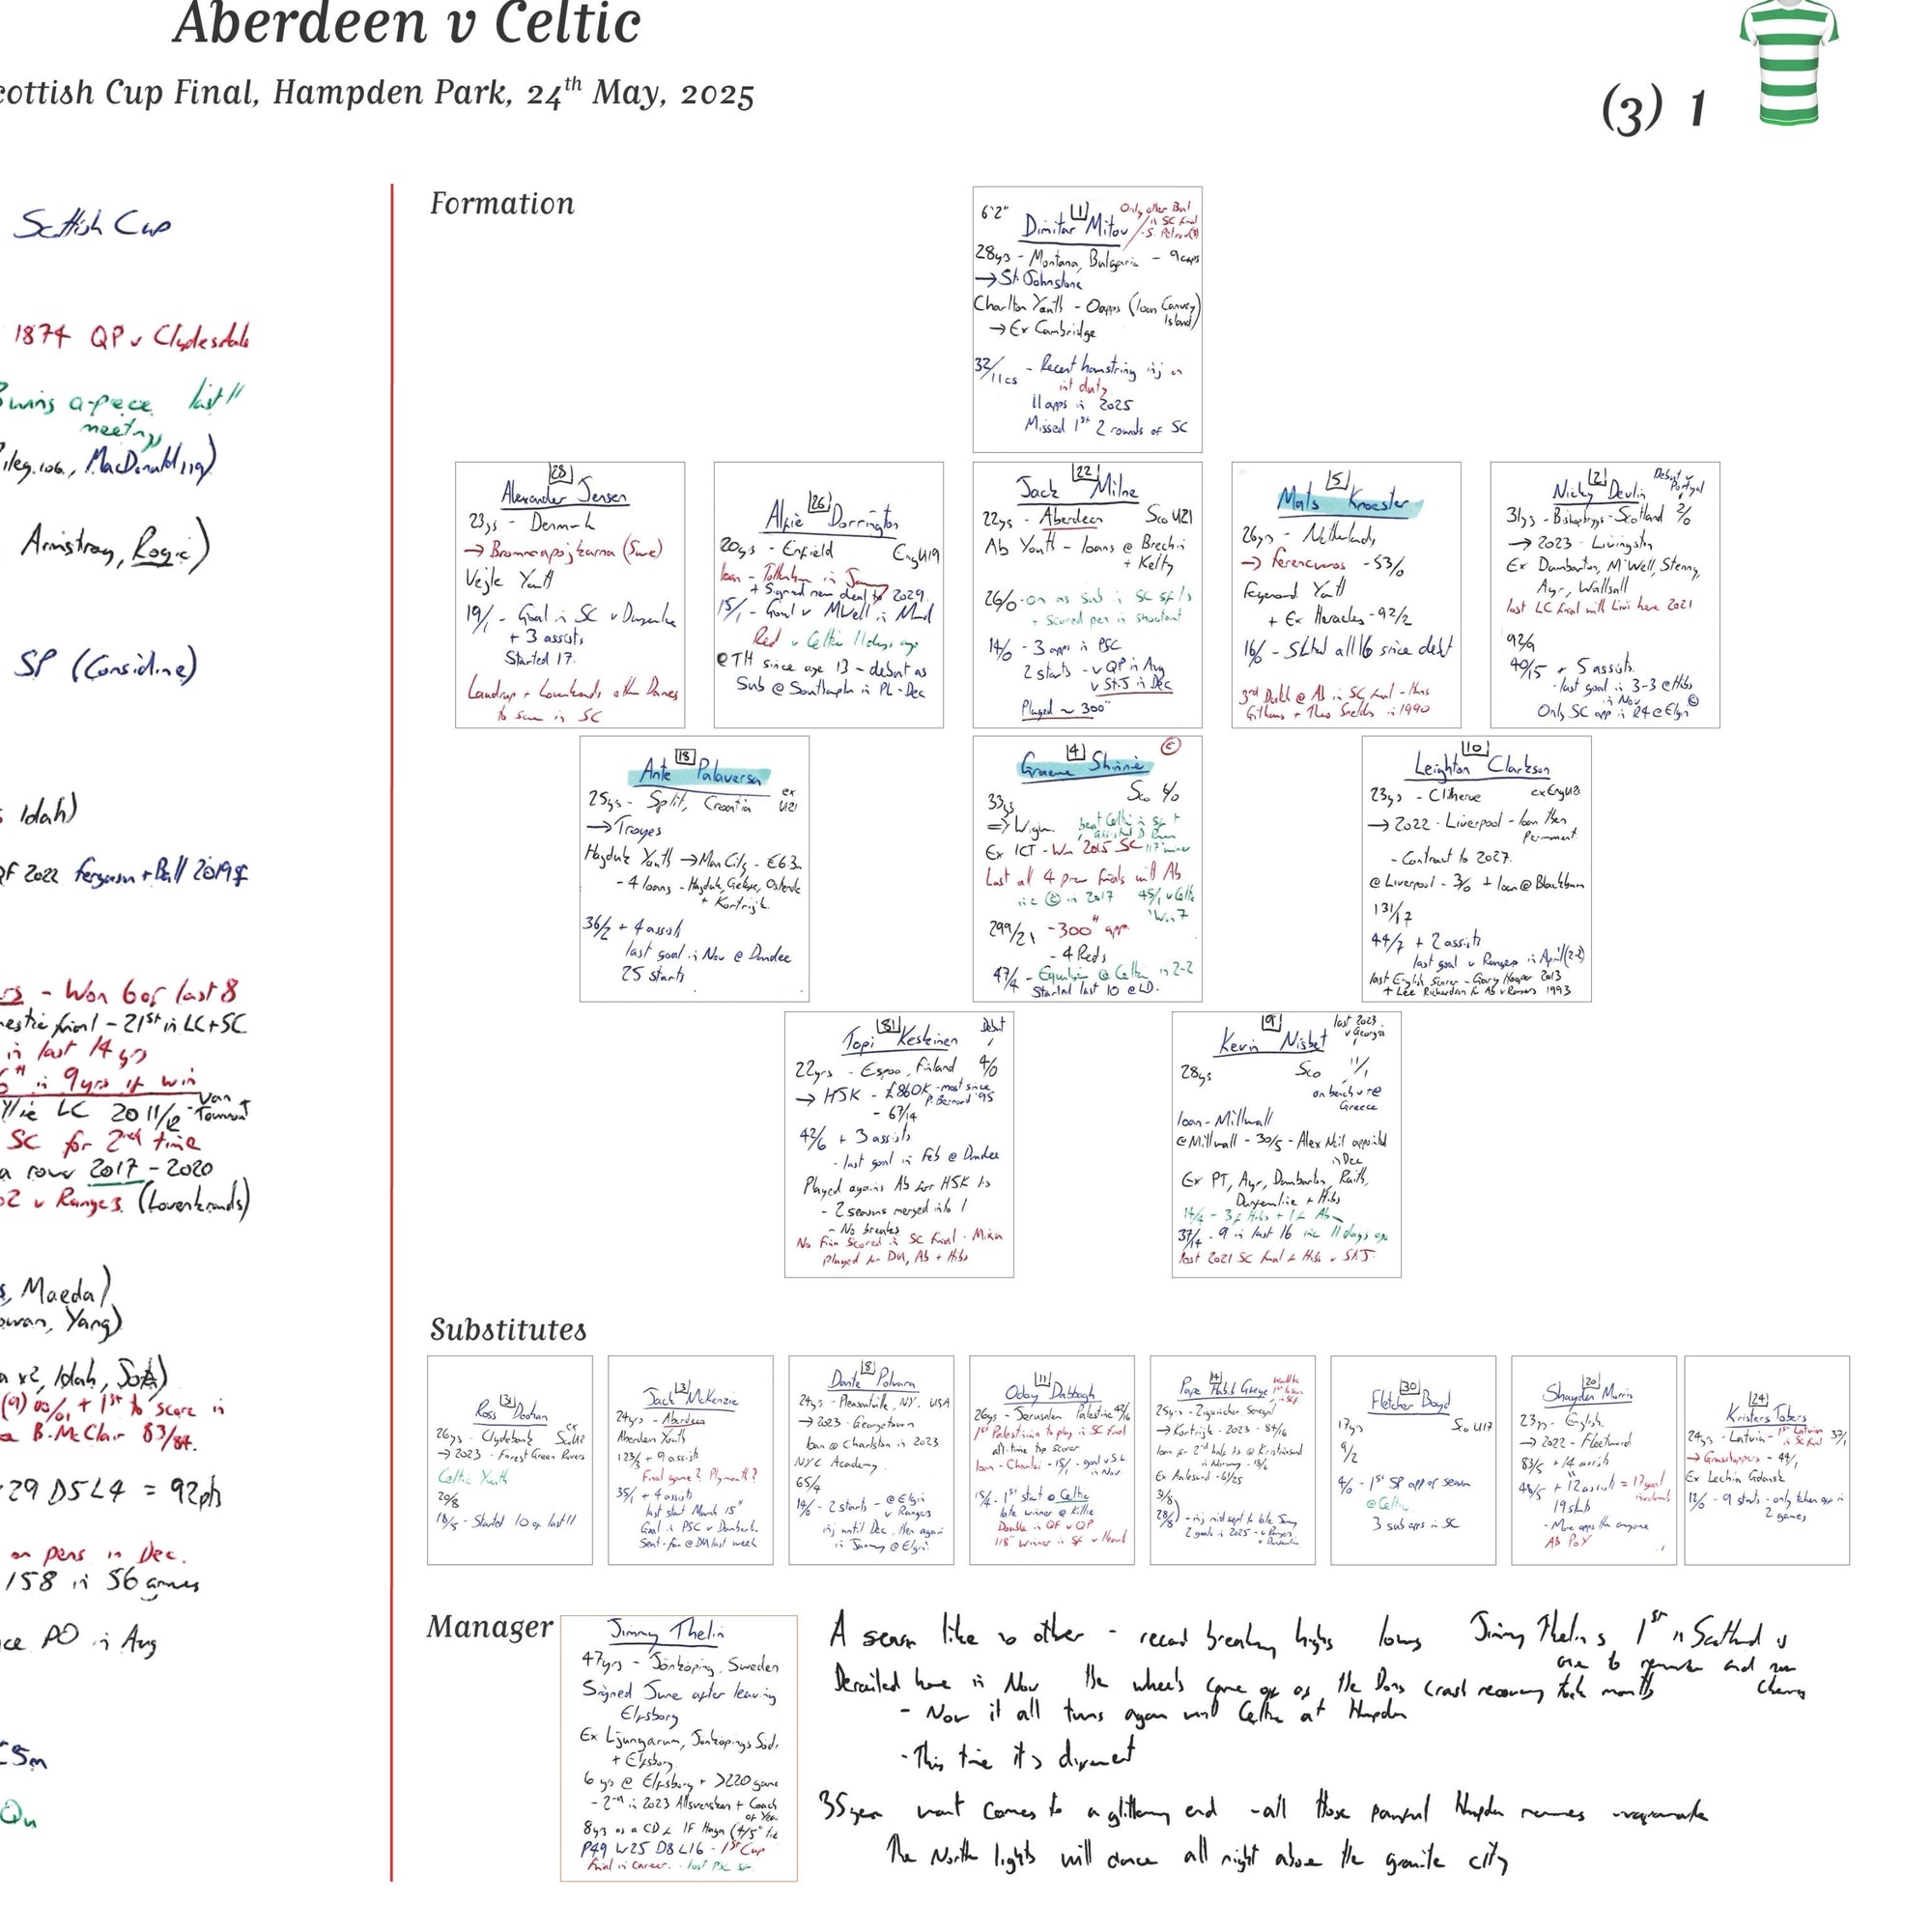 Aberdeen v Celtic
cottish Cup Final, Hampden Park, 24th May, 2025
(3) 1
Scottish Cup
1874 QP v Clydesdale
wins a-piece last 11
meetings
MacDonald 119)
Armstrong, Rogic)
SP (Considine)
Idah)
QF 2022 Ferguson + Ball 2019 SF
- Won 6 of last 8
final - 21st in LC+SC
in last 14 yrs
in 9yrs if win
LC 2011/12 - Van Tournout
SC for 2nd time
a row 2017 - 2020
v Rangers (Lovenkrands)
, Maeda)
Yang)
x2, Idah,
+ 1st to score in
B. McClair 83/84.
29 D5 L4 = 92pts
on pens in Dec.
158 in 56 games
PO in Aug
5m
Formation
6'2" [1] Only other Bul
Dimitar Mitov in SC final
- S. Petrov (3)
28yrs - Montana, Bulgaria - 9 caps
→ St. Johnstone
Charlton Youth - 0apps (loan Canvey
Island)
→ Ex Cambridge
32/11cs - Recent hamstring inj on
int duty
11 apps in 2025
Missed 1st 2 rounds of SC
[28]
Alexander Jensen
23yrs - Denmark
→ Brommapojkarna (Swe)
Vejle Youth
19/1 - Goal in SC v Dunfermline
+ 3 assists
Started 17.
Laudrup + Lovenkrands other Danes
to score in SC
[26]
Alfie Dorrington
20yrs - Enfield EngU19
loan - Tottenham in January
+ Signed new deal to 2029.
15/1 - Goal v MWell in March
Red v Celtic 11 days ago
@TH since age 13 - debut as
Sub @ Southampton in PL - Dec
[22]
Jack Milne
22yrs - Aberdeen Sco U21
Ab Youth - loans @ Brechin
+ Kelty
26/0 - on as sub in SC SF
+ scored pen in shootout
14/0 - 3 apps in PSC
2 starts - v QP in Aug
v St.J in Dec
Played ~ 300"
[5]
Mats Knoester
26yrs - Netherlands
→ Ferencvaros - 53/0
Feyenoord Youth
+ Ex Heracles - 92/2
16/0 - Started all 16 since debut
3rd Dutch @ Ab in SC final - Hans
Gillhaus + Theo Snelders in 1990
[2] Debut v
Nicky Devlin Portugal
31yrs - Bishopbriggs - Scotland 2/0
→ 2023 - Livingston
Ex Dumbarton, M'Well, Stenny,
Ayr, Walsall
lost LC final with Livi here 2021
92/9
40/5 + 5 assists
- last goal in 3-3 @ Hibs
in Nov
Only SC app in R4 @ Elgin ©
[18]
Ante Palaversa ex
25yrs - Split, Croatia U21
→ Troyes
Hajduk Youth → Man City - €6.3m
- 4 loans - Hajduk, Getafe, Ostende
+ Kortrijk.
36/2 + 4 assists
last goal in Nov @ Dundee
25 starts
[4] ©
Graeme Shinnie
Sco 6/0
33yrs
⇒ Wigan beat Celtic in SF +
Ex ICT - Won 2015 SC 117' winner
Lost all 4 prev finals with Ab
inc © in 2017 45/1 v Celtic
Won 7
299/21 - 300th app.
- 4 Reds
47/4 - Equaliser @ Celtic in 2-2
Started last 10 @ LD.
[10]
Leighton Clarkson
23yrs - Clitheroe ex EngU20
→ 2022 - Liverpool - loan then
Permanent
- Contract to 2027.
@ Liverpool - 3/0 + loan @ Blackburn
131/17
44/7 + 2 assists
last goal v Rangers in April (2-2)
last English Scorer - Gary Hooper 2013
+ Lee Richardson for Ab v Rangers 1993
[81] Debut
Topi Keskinen
22yrs - Espoo, Finland 4/0
→ HJK - £860K - most since
P. Bernard '95
- 67/14
42/6 + 3 assists
- last goal in Feb @ Dundee
Played agains Ab for HJK
- 2 seasons merged into 1
- No breaks
No Finn Scored in SC Final - Mixu
Played for DU, Ab + Hibs
[9] last 2023
Kevin Nisbet v Georgia
28yrs Sco 11/1
on bench v Greece
loan - Millwall
@ Millwall - 30/5 - Alex Neil appointed
in Dec
Ex PT, Ayr, Dumbarton, Raith,
Dunfermline + Hibs
14/4 - 3 for Hibs + 1 for Ab
37/14 - 9 in last 16 inc 11 days ago
lost 2021 SC final for Hibs v St.J
Substitutes
[31]
Ross Doohan ex
26yrs - Clydebank ScoU21
→ 2023 - Forest Green Rovers
Celtic Youth
20/8
18/5 - Started 10 of last 11
[3]
Jack McKenzie
24yrs - Aberdeen
Aberdeen Youth
123/3 + 9 assists
Final game? Plymouth?
35/1 + 4 assists
last start March 15th
Goal in PSC v Dumbarton
Sent-off @ DU last week
[8]
Dante Polvara
24yrs - Pleasantville, NY. USA
→ 2023 - Georgetown
loan @ Charleston in 2023
NYC Academy
65/4
14/0 - 2 starts - @ Elgin
v Rangers
inj until Dec, then again
in January @ Elgin
[11]
Oday Dabbagh
26yrs - Jerusalem Palestine 42/16
1st Palestinian to play in SC final
all-time top scorer
loan - Charleroi - 15/1 - goal v StL
in Nov.
15/4 - 1st start @ Celtic
late winner @ Killie
Double in QF v QP
118" Winner in SF v Hearts
[14]
Pape Habib Gueye
25yrs - Ziguinchor, Senegal
→ Kortrijk - 2023 - 84/16
loan for 2nd half to @ Kristiansund
in Norway - 18/6
Ex Aalesund - 61/25
3/8
28/8 - inj mid sept to late Jan
2 goals in 2025 - v Rangers
[30]
Fletcher Boyd
17yrs Sco U17
9/2
4/0 - 1st SP app of season
@ Celtic
3 sub apps in SC
[20]
Shayden Morris
23yrs - English.
→ 2022 - Fleetwood
83/5 + 14 assists
48/5 + 12 assists = 17 goal
involvements
19 starts
- More apps than anyone
Ab PoY
[24]
Kristers Tobers
24yrs - Latvia - 1st Latvian in SC final 37/1
→ Grasshoppers - 44/1
Ex Lechia Gdansk
12/0 - 9 starts - only taken off in
2 games
Manager
Jimmy Thelin
47yrs - Jönköping, Sweden
Signed June after leaving
Elfsborg
Ex Ljungarum, Jönköpings Sodra
+ Elfsborg
6 yrs @ Elfsborg + >220 games
- 2nd in 2023 Allsvenskan + Coach
of Year
8yrs as a CD for IF Haga (4/5th tier
P49 W25 D8 L16 - 1st Cup
Final in career. - lost PSC SF
A season like no other - record breaking highs lows Jimmy Thelin's 1st in Scotland is
one to remember and
Derailed here in Nov the wheels came off as the Dons crash recovery took months
- Now it all turns again with Celtic at Hampden
- This time it's different
35 year wait comes to a glittering end - all those painful Hampden memories
The North lights will dance all night above the granite city